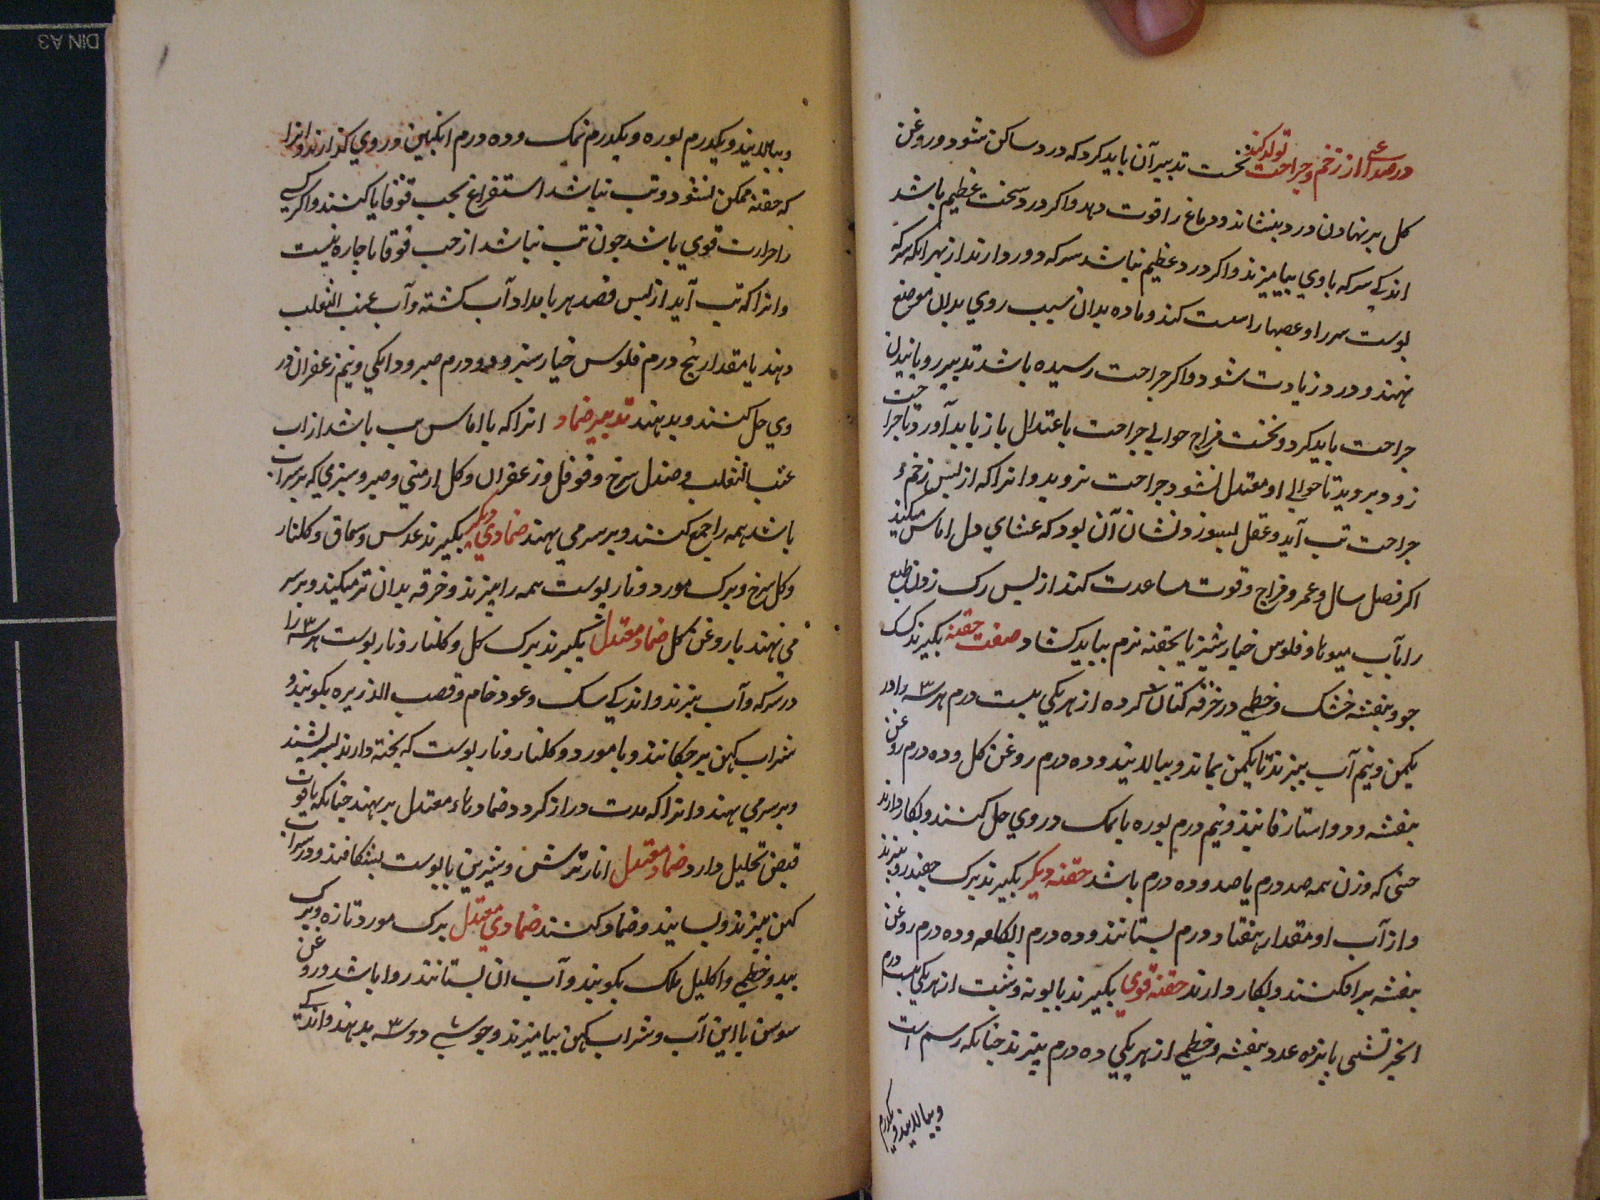 در صداع از زخم و جراحت تولد کند نخست تدبیر آن باید کرد که درد ساکن شود و روغن
کل بر نهادن درد بنشاند و دماغ را قوت دهد و اکر درد سخت عظیم باشد
اندکی سرکه با وی بیامیزند و اکر درد عظیم نباشد سرکه دور دارند از بهر انکه سرکه
پوست سر را و عصبها را سست کند و ماده بدان سبب روی بدان موضع
نهند و درد زیادت شود و اکر جراحت رسیده باشد تدبیر رویانیدن
جراحت باید کرد و نخست مزاج حوالی جراحت باعتدال باز باید آورد تا جراحت
زود بروید تا حوالی او معتدل نشود جراحت نروید و انرا که از پس زخم و
جراحت تب آید و عقل بسوزد نشان آن بود که غشای دل اماس میکند
اکر فصل سال و عمر و مزاج و قوت مساعدت کند از پس رک زدن طبع
را بآب میوها و فلوس خیارشنبر یا بحقنه نرم بباید کشاد صفت حقنه بکیرند کشک
جو و بنفشه خشک و خطمی در خرقه کتان کرده از هر یکی بیست درم هر سه را در
یکمن و نیم آب بپزند تا یکمن بماند و بپالایند و ده درم روغن کل و ده درم روغن
بنفشه و دو استار فانیذ و نیم درم بوره یا نمک در وی حل کنند و بکار دارند
حنی که وزن همه صد درم یا صد و ده درم باشد حقنه دیکر بکیرند برک چقندر و بپزند
و از آب او مقدار هفتاد درم بستانند و ده درم آبکامه و ده درم روغن
بنفشه برافکنند و بکار دارند حقنه قوی بکیرند بابونه و شبت از هر یکی بیست درم
انجیر تشنی پانزده عدد بنفشه و خطمی از هر یکی ده درم بپزند چنانکه رسم است
و بپالایند و یکدرم
و بپالایند و یکدرم بوره و یکدرم نمک و ده درم انکبین در وی کدازند و انرا
که حقنه ممکن نشود و تب نباشد استفراغ بحب قوقایا کنند و اکر کسی
را حرارت قوی باشد چون تب نباشد از حب قوقایا چاره نیست
و انرا که تب آید از پس فصد هر بامداد آب کشنه و آب عنب الثعلب
دهند با مقدار پنج درم فلوس خیارشنبر و دو درم صبر و دانکی و نیم زعفران در
وی حل کنند و بدهند تدبیر ضماد انرا که با اماس تب باشد از آب
عنب الثعلب و صندل سرخ و فوفل و زعفران و کل ارمنی و صبر و سبزی که بر سر آب
باشد همه را جمع کنند و بر سر می نهند ضمادی دیکر بکیرند عدس و سماق و کلنار
و کل سرخ و برک مورد و نار پوست همه را بپزند و خرقه بدان تر میکنند و بر سر
می نهند با روغن کل ضماد معتدل بکیرند برک کل و کلنار و نار پوست هر سه را
در سرکه و آب بپزند و اندکی سک و عود خام و قصب الذریره بکوبند و
شراب کهن برچکانند و با مورد و کلنار و نار پوست که پخته دارند بسرشند
و بر سر می نهند و انرا که مدت دراز کردد ضمادهاء معتدل برنهند چنانکه با قوت
قبض تحلیل دارد ضماد معتدل انار ترش و شیرین با پوست بشکافند و در شراب
کهن بپزند و بسایند و ضماد کنند ضمادی معتدل برک مورد تازه و برک
بید و خطمی و اکلیل ملک بکوبند و آب ان بستانند روا باشد و روغن
سوسن با این آب و شراب کهن بیامیزند و جوشی دو سه بدهند و اندکی